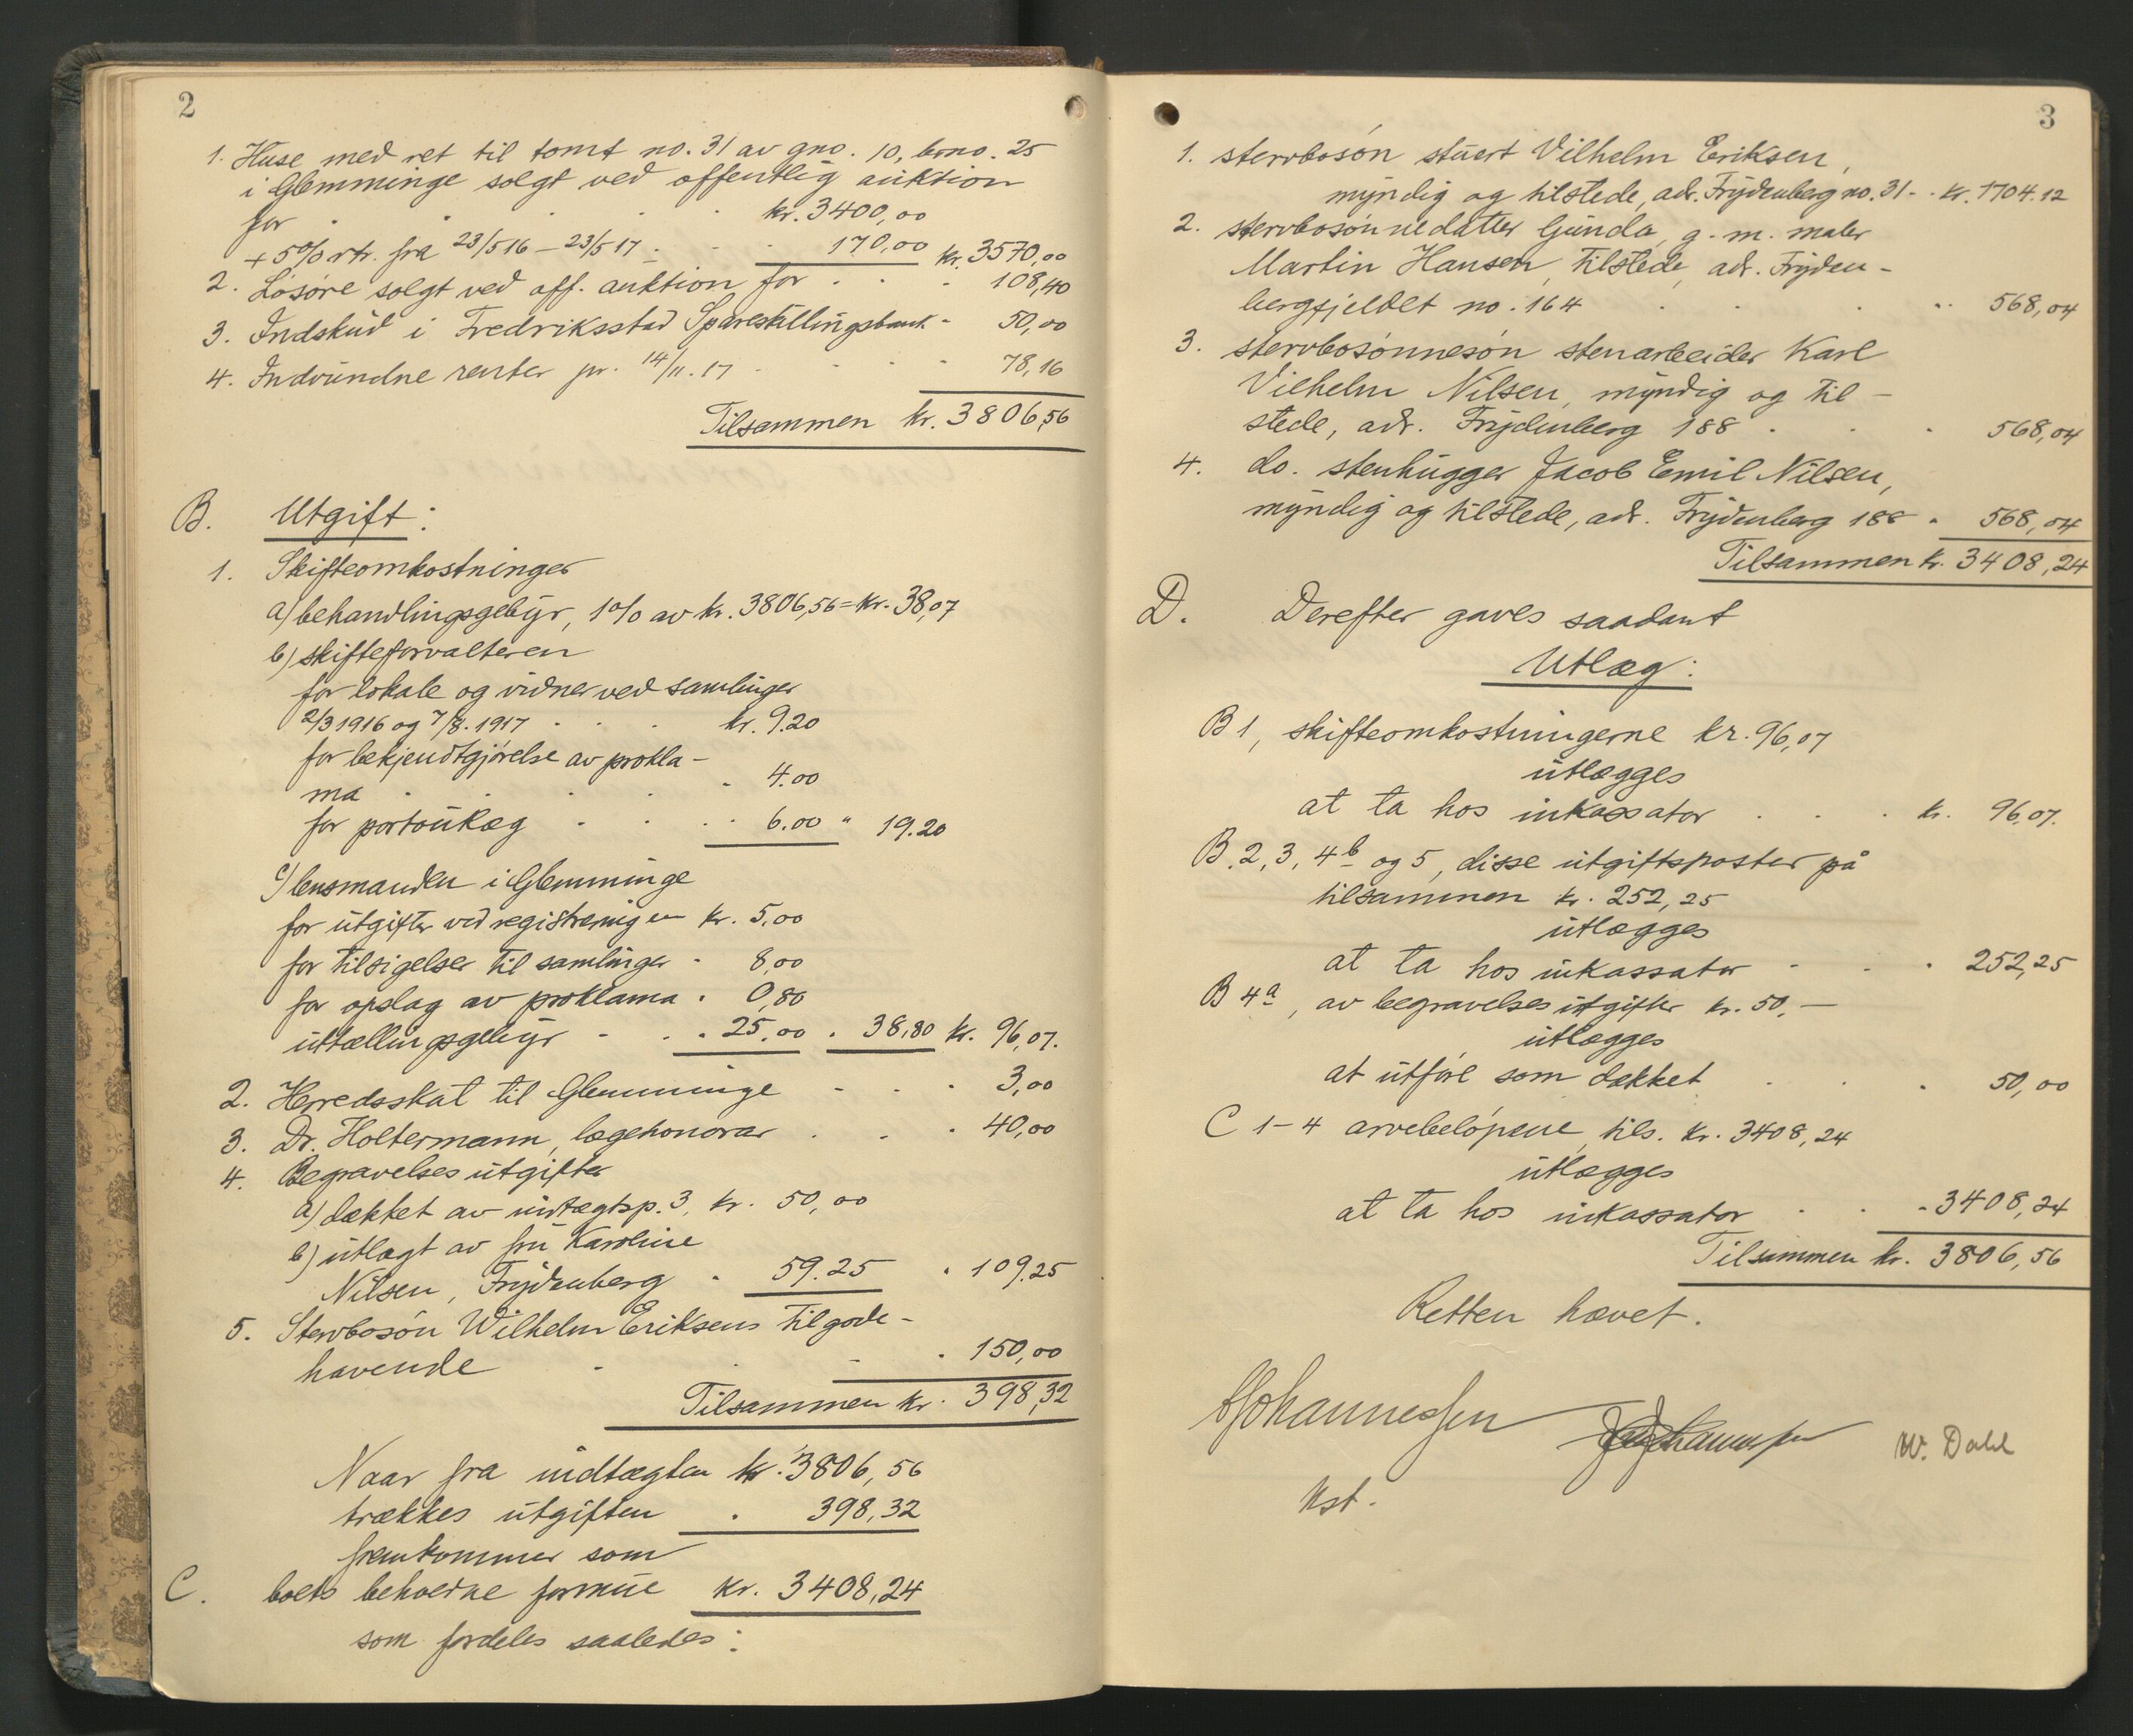 2
1. Huse med ret til tomt no. 31 av gno. 10, brno. 25
i Glemminge solgt ved offentlig auktion
for . . . . . kr. 3400,00
+ 5% rtr. fra 23/5 16 – 23/5 17 . - . 170,00 kr. 3570,00
2. Løsøre solgt ved off. auktion for . . . 108,40
3. Indskud i Fredriksstad Spareskillingsbank - 50,00
4. Indvundne renter pr. 14/11.17 - - - - 78,16
Tilsammen kr. 3806,56
B. Utgift:
1. Skifteomkostninger
a) behandlingsgebyr, 1% av kr. 3806,56 = kr. 38,07
b) skifteforvalteren
for lokale og vidner ved samlinger
2/3 1916 og 7/8. 1917 . . . kr. 9.20
for bekjendtgjørelse av prokla-
ma . . . . . 4.00
for portoutlæg . . . . 6.00 " 19.20
c) lensmanden i Glemminge
for utgifter ved registreringen kr. 5,00
for tilsigelser til samlinger - 8,00
for opslag av proklama . 0,80
uttællingsgebyr - . . 25,00 . 38,80 kr. 96,07.
2. Herredsskat til Glemminge - - . 3,00
3. Dr. Holtermann, lægehonorar . . . 40,00
4. Begravelsesutgifter
a) dækket av indtægtsp. 3, kr. 50,00
b) utlagt av fru Karoline
Nilsen, Frydenberg . 59.25 . 109.25
5. Stervbosøn Wilhelm Eriksens tilgode-
havende - - - . 150,00
Tilsammen kr. 398,32
Naar fra indtægten kr. 3806,56
trækkes utgiften . 398,32
fremkommer som
C. boets beholdne formue kr. 3408,24
som fordeles saaledes:
3
1. stervbosøn stuert Vilhelm Eriksen,
myndig og tilstede, adr. Frydenberg no. 31 - . kr. 1704.12
2. stervbosønnedatter Gunda, g. m. maler
Martin Hansen, tilstede, adr. Fryden-
bergfjeldet no. 164 . . . . 568,04
3. stervbosønnesøn stenarbeider Karl
Vilhelm Nilsen, myndig og til-
stede, adr. Frydenberg 188 . . . 568,04
4. do. stenhugger Jacob Emil Nilsen,
myndig og tilstede, adr. Frydenberg 188 . 568,04
Tilsammen kr. 3408,24
D. Derefter gaves saadant
Utlæg:
B 1, skifteomkostningerne kr. 96,07
utlægges
at ta hos inkassator . . . kr. 96,07.
B. 2, 3, 4b og 5, disse utgiftsposter på
tilsammen kr. 252,25
utlægges
at ta hos inkassator - . . 252,25
B 4a, av begravelsesutgifter kr. 50,—
utlægges
at utføre som dækket . . . 50,00
C 1–4 arvebeløpene, tils. kr. 3408,24
utlægges
at ta hos inkassator . . . 3408,24
Tilsammen kr. 3806,56
Retten hævet.
Johannessen
W. Dahl
Kst.